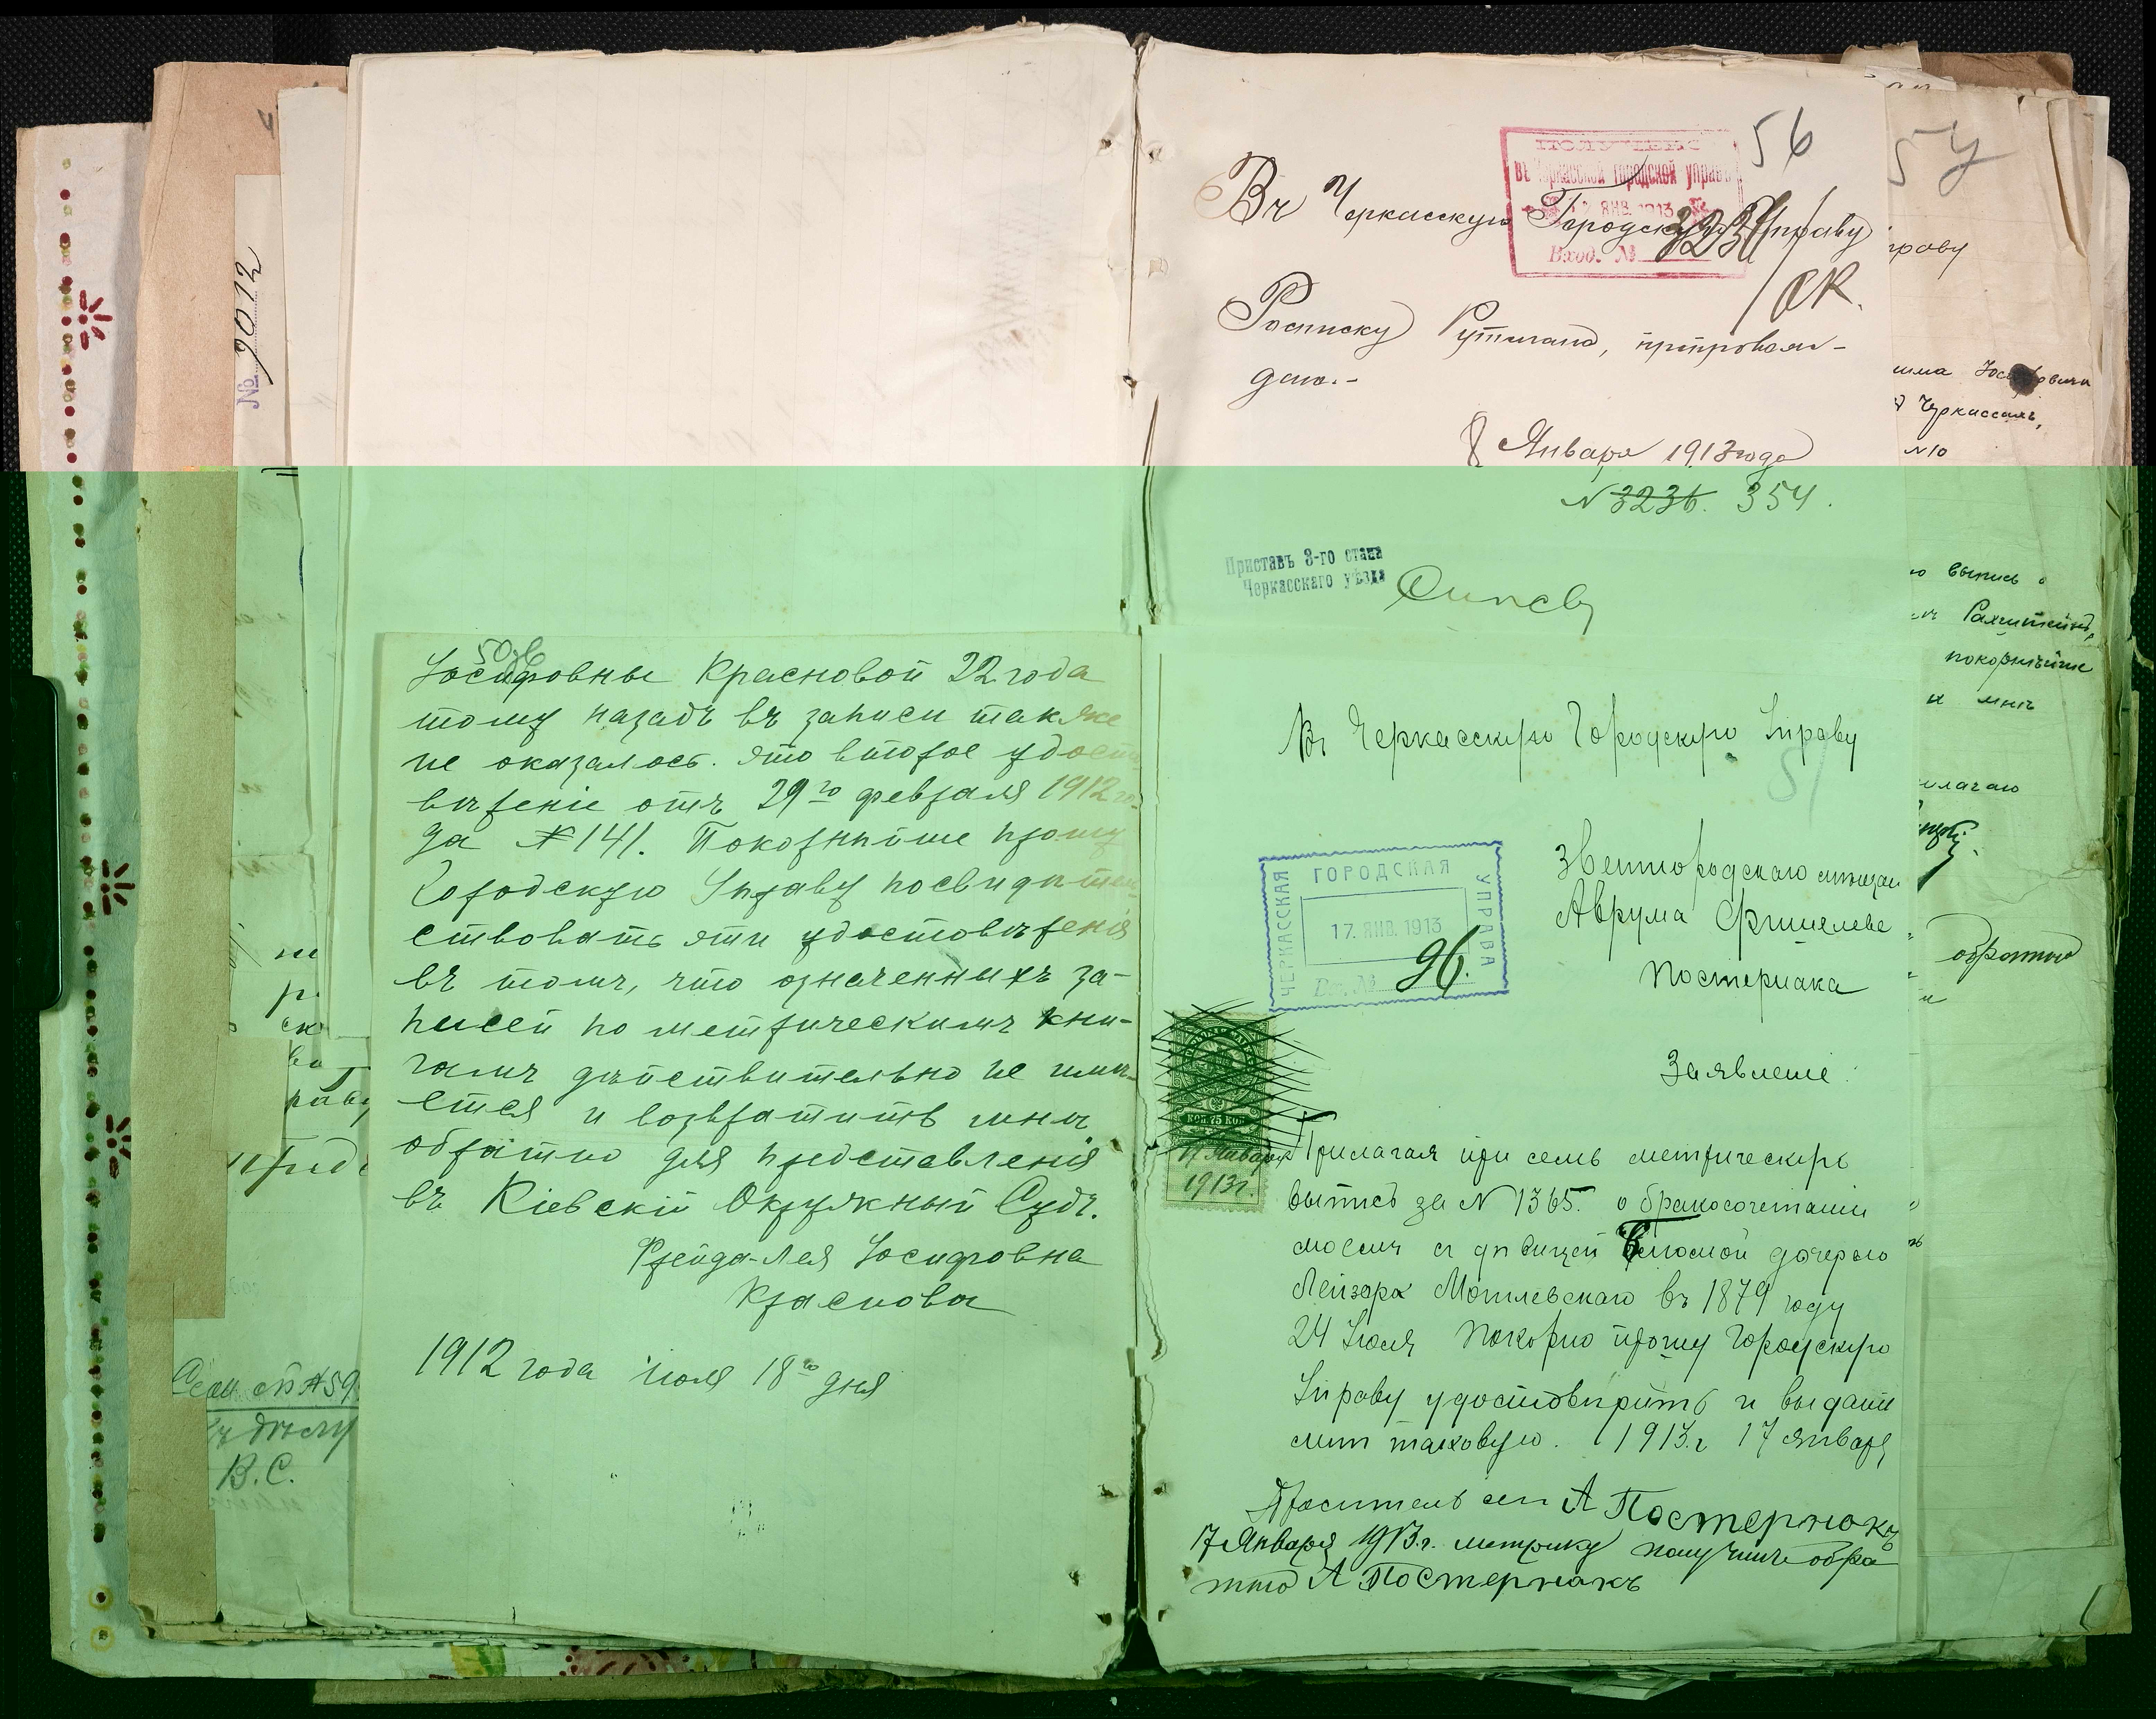 № 9012
50об
Іосифовны Красновой 22 года
тому назадъ въ записи также
не оказалось. Это второе удост
вѣреніе отъ 29го февраля 1912 го-
да № 141. Покорнѣйше прошу
Городскую Управу посвидѣтель
ствовать эти удостовѣренія
въ томъ, что означенныхъ за-
писей по метрическимъ кни-
гамъ дѣйствительно не имѣ-
ется и возвратить мнѣ
обратно для представленія
въ Кіевскій Окружный Судъ.
Фрейда-Лея Іосифовна
Краснова
1912 года іюля 18го дня
къ дѣлу
В.С.
56
ПОЛУЧЕНО
въ Черкасской городской управѣ
ЯНВ. 1913
Вход. №
323
Въ Черкасскую Городскую Управу
Росписку Рутмана, препровож-
даю.-
8 Января 1913 года
N 3236. 354.
Приставъ 3-го стана
Черкасскаго уѣзда
51
Въ Черкасскую Городскую Управу
ЧЕРКАССКАЯ ГОРОДСКАЯ УПРАВА
17. ЯНВ. 1913
Вх. № 96.
Звенигородскаго мѣщан
Аврума Фишелева
Постернака
Заявленіе
КОП 75 КОП
17 Января
1913 г.
Прилагая при семъ метрическую
выпись за N 1365. о бракосочетаніи
моемъ съ дѣвицей дочерью
Лейзора Могилевскаго въ 1879 году
24 Іюля Покорно прошу Городскую
Управу удостовѣрить и выдать
мнѣ таковую. 1913 г. 17 января
Проситель сей А Постернакъ
17 Января 1913 г. метрику получилъ обра
тно А Постернакъ
57
праву
Черкассахъ,
N 10
выпись о
покорнѣйше
мнѣ
илагаю
обратно